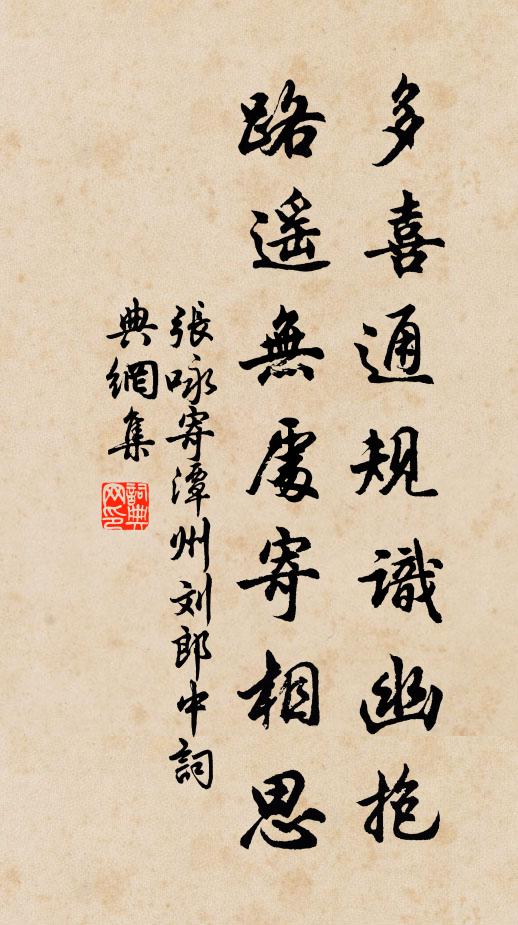 多喜通規識幽抱
路遥無處寄相思
張咏寄潭州刘郎中詞
典網集
詞典
网印